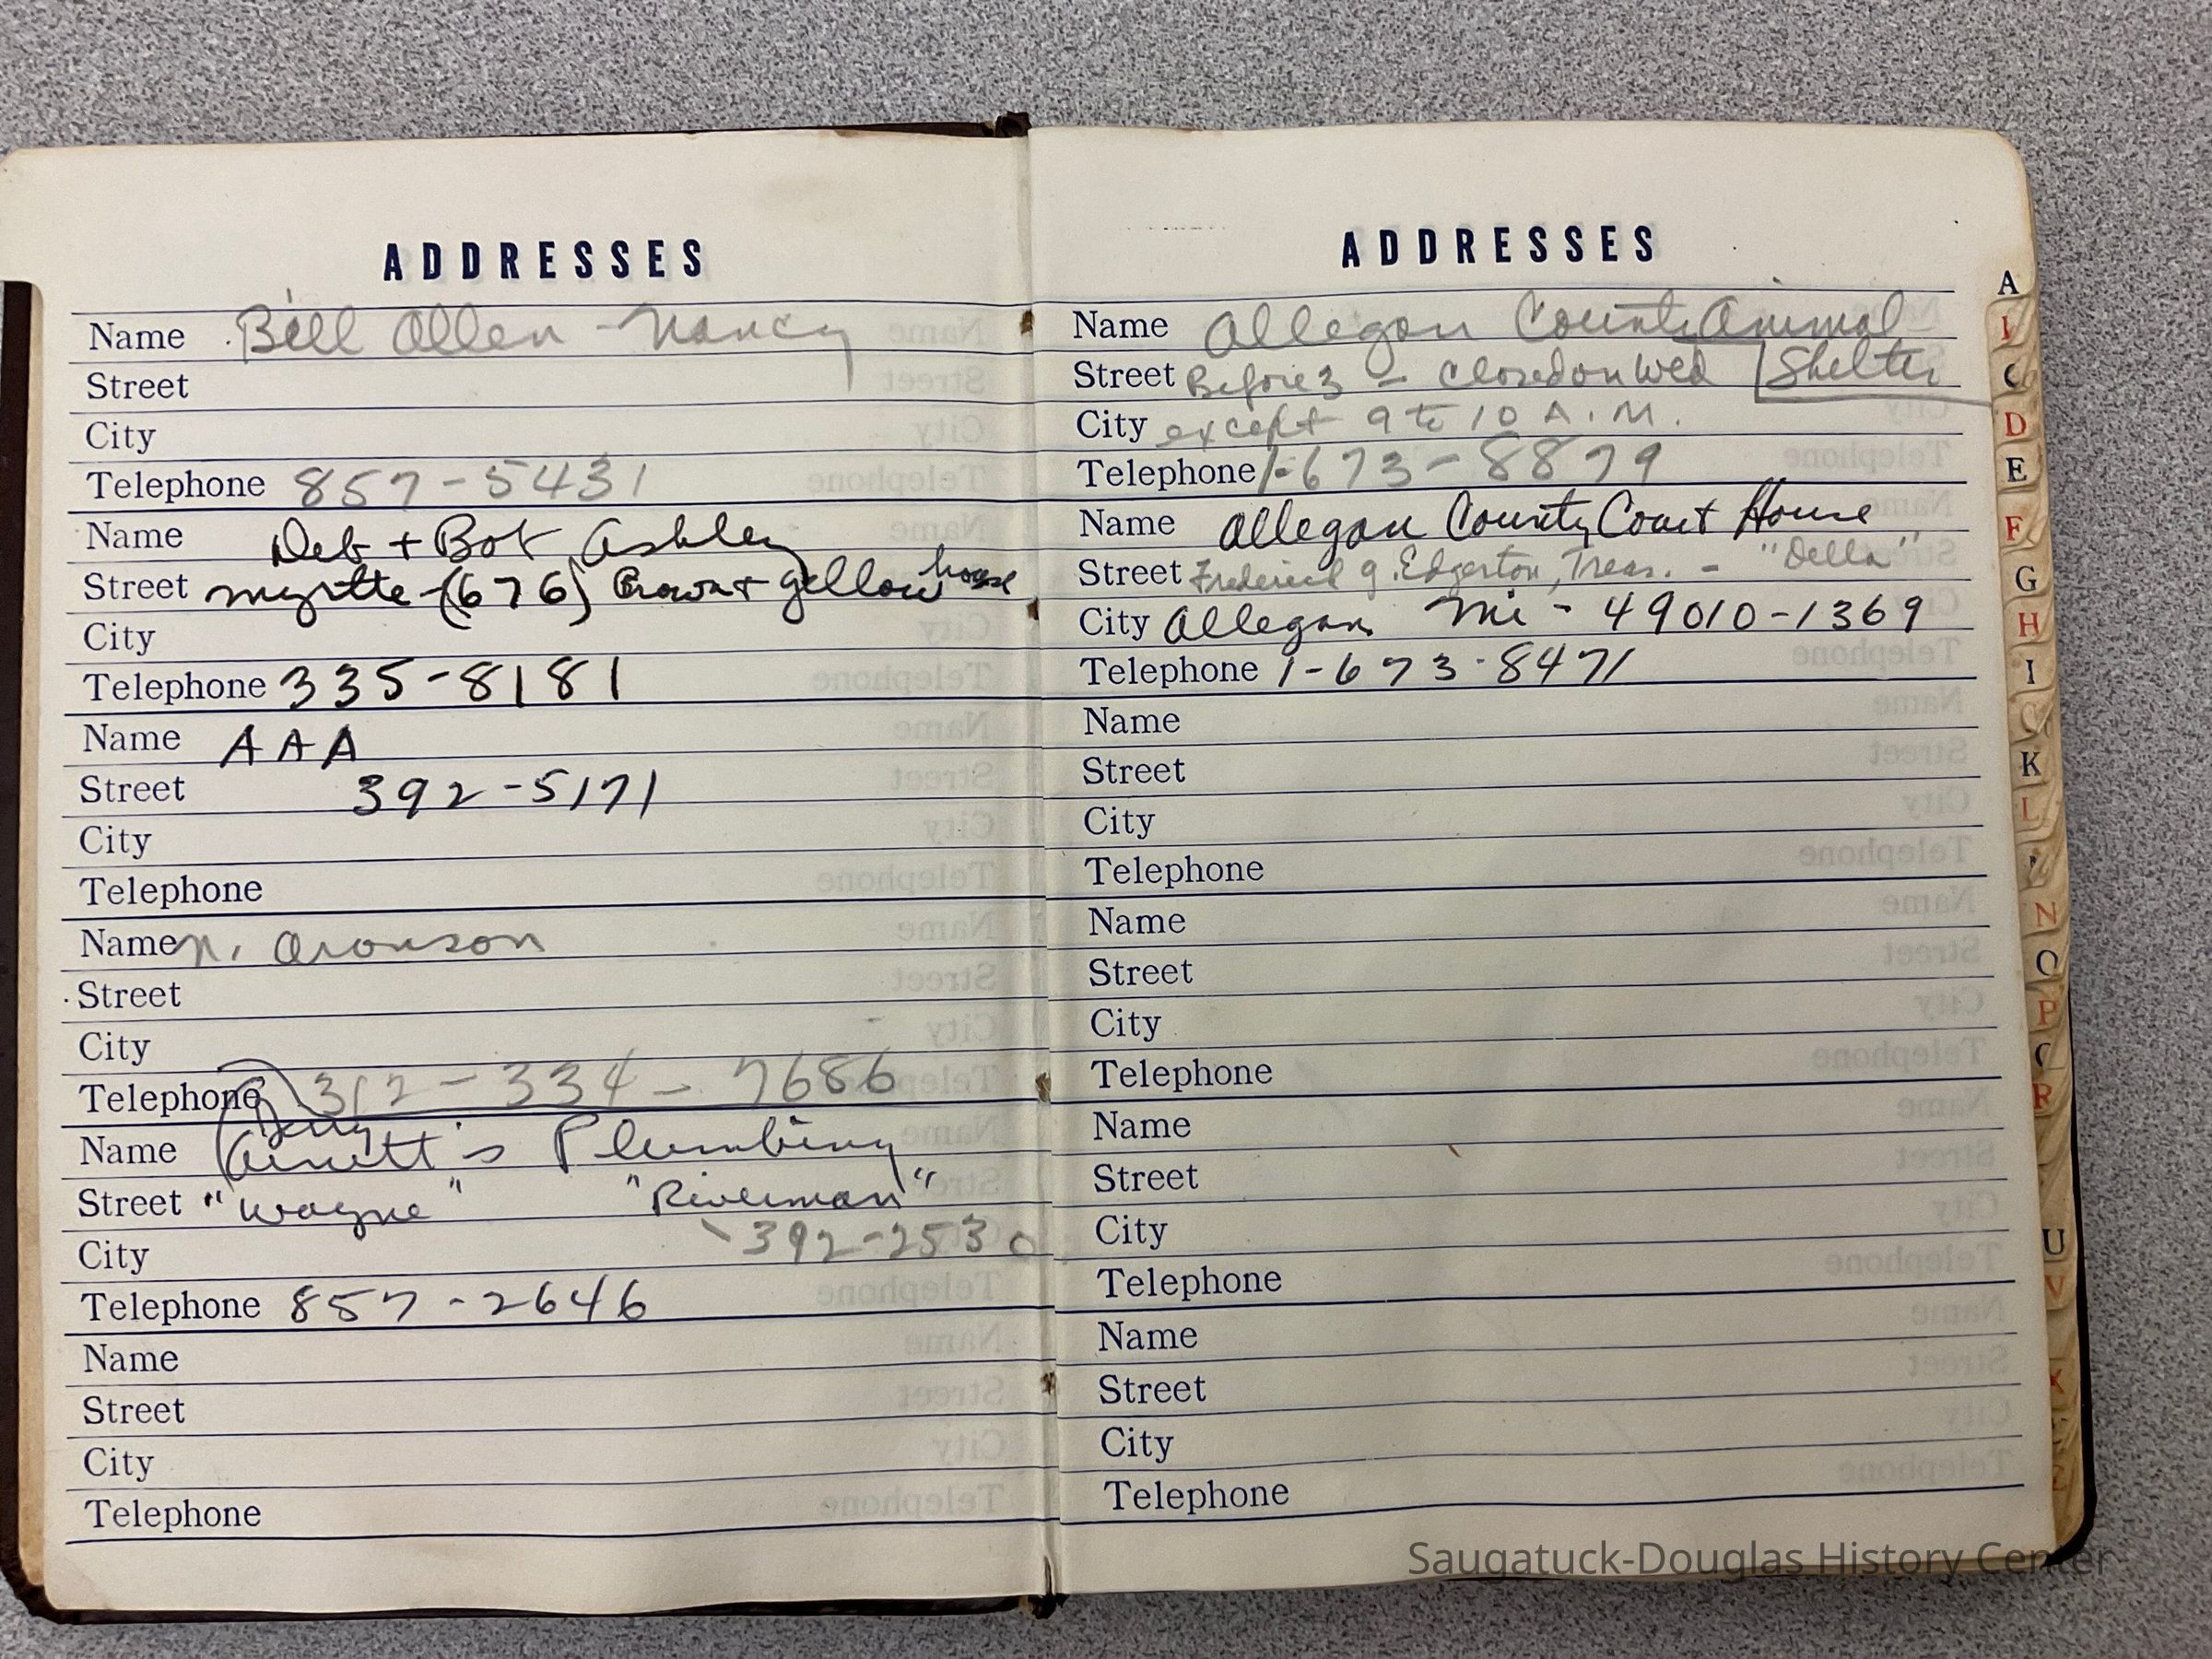 ADDRESSES
Name Bill Allen - Nancy
Street
City
Telephone 857-5431
Name Deb + Bob Ashley
Street Myrtle - (676) Brown + yellow house
City
Telephone 335-8181
Name AAA
Street 392-5171
City
Telephone
Name N. Aronson
Street
City
Telephone 312-334-7686
Name Arnett's Plumbing
Street "Wayne" "Riverman"
City 392-2530
Telephone 857-2646
Name
Street
City
Telephone
ADDRESSES
Name Allegan County Animal
Street Before 3 - closed on Wed Shelter
City except 9 to 10 A.M.
Telephone 1-673-8879
Name Allegan County Court House
Street Frederick J. Edgerton, Treas. - "Della"
City Allegan Mi - 49010-1369
Telephone 1-673-8471
Name
Street
City
Telephone
Name
Street
City
Telephone
Name
Street
City
Telephone
Name
Street
City
Telephone
A
C
D
E
F
G
H
I
K
L
N
O
P
R
U
V
X
Saugatuck-Douglas History Center